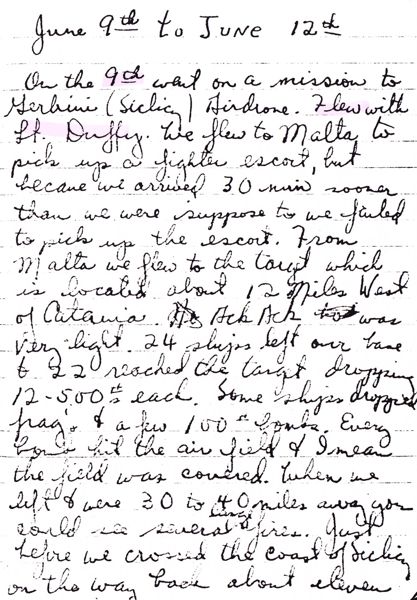 June 9th to June 12th
On the 9th went on a mission to
Gerbini (Siclicy) Airdrone. Flew with
Lt. Duffy. We flew to Malta to
pick up a fighter escort, but
because we arrived 30 min sooner
than we were suppose to we failed
to pick up the escort. From
Malta we flew to the target which
is located about 12 Miles West
of Catania. Ack Ack was
very light. 24 ships left our base
& 22 reached the target dropping
12-500#s each. Some ships dropped
frag. & a few 100# bombs. Every
bomb hit the air field & I mean
the field was covered. When we
left & were 30 to 40 miles away you
could see several large fires. Just
before we crossed the coast of Siclicy
on the way back about eleven